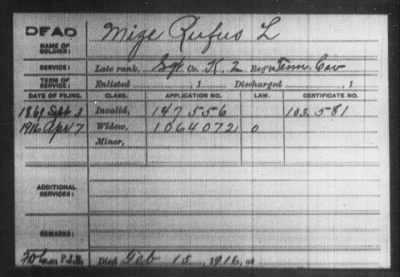 DEAD
Mize Rufus L
NAME OF SOLDIER:
SERVICE: Late rank, Sgt. Co. K, 2 Reg't Tenn. Cav
TERM OF SERVICE: Enlisted , 1 Discharged , 1
DATE OF FILING. CLASS. APPLICATION NO. LAW. CERTIFICATE NO.
Invalid, 147556 103,581
1916 Apr 7 Widow, 1064072
Minor,
ADDITIONAL SERVICES:
REMARKS:
Died Feb 15, 1916, at